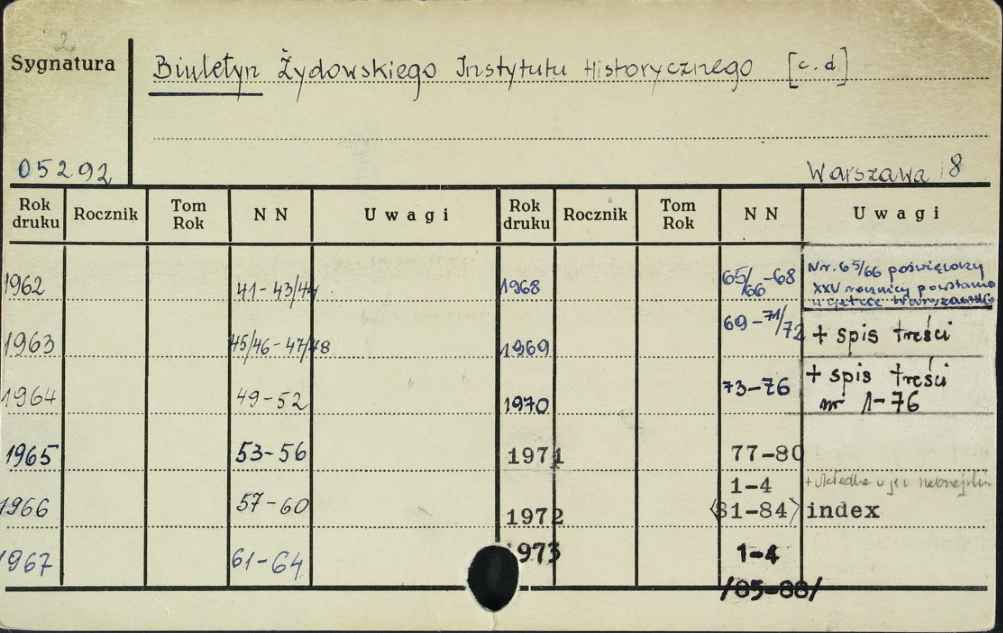 2
Sygnatura
Biuletyn Żydowskiego Instytutu Historycznego [c.d]
05292
Warszawa 8
Rok druku Rocznik Tom Rok NN Uwagi Rok druku Rocznik Tom Rok NN Uwagi
1962 41-43/44 1968 65/66-68 Nr. 65/66 poświęcony
XXV rocznicy powstania
w getcie Warszawskim
1963 45/46-47/48 1969 69-71/72 + spis treści
1964 49-52 1970 73-76 + spis treści
nr 1-76
1965 53-56 1971 77-80
1966 57-60 1972 1-4
<81-84> index
1967 61-64 1973 1-4
/85-88/